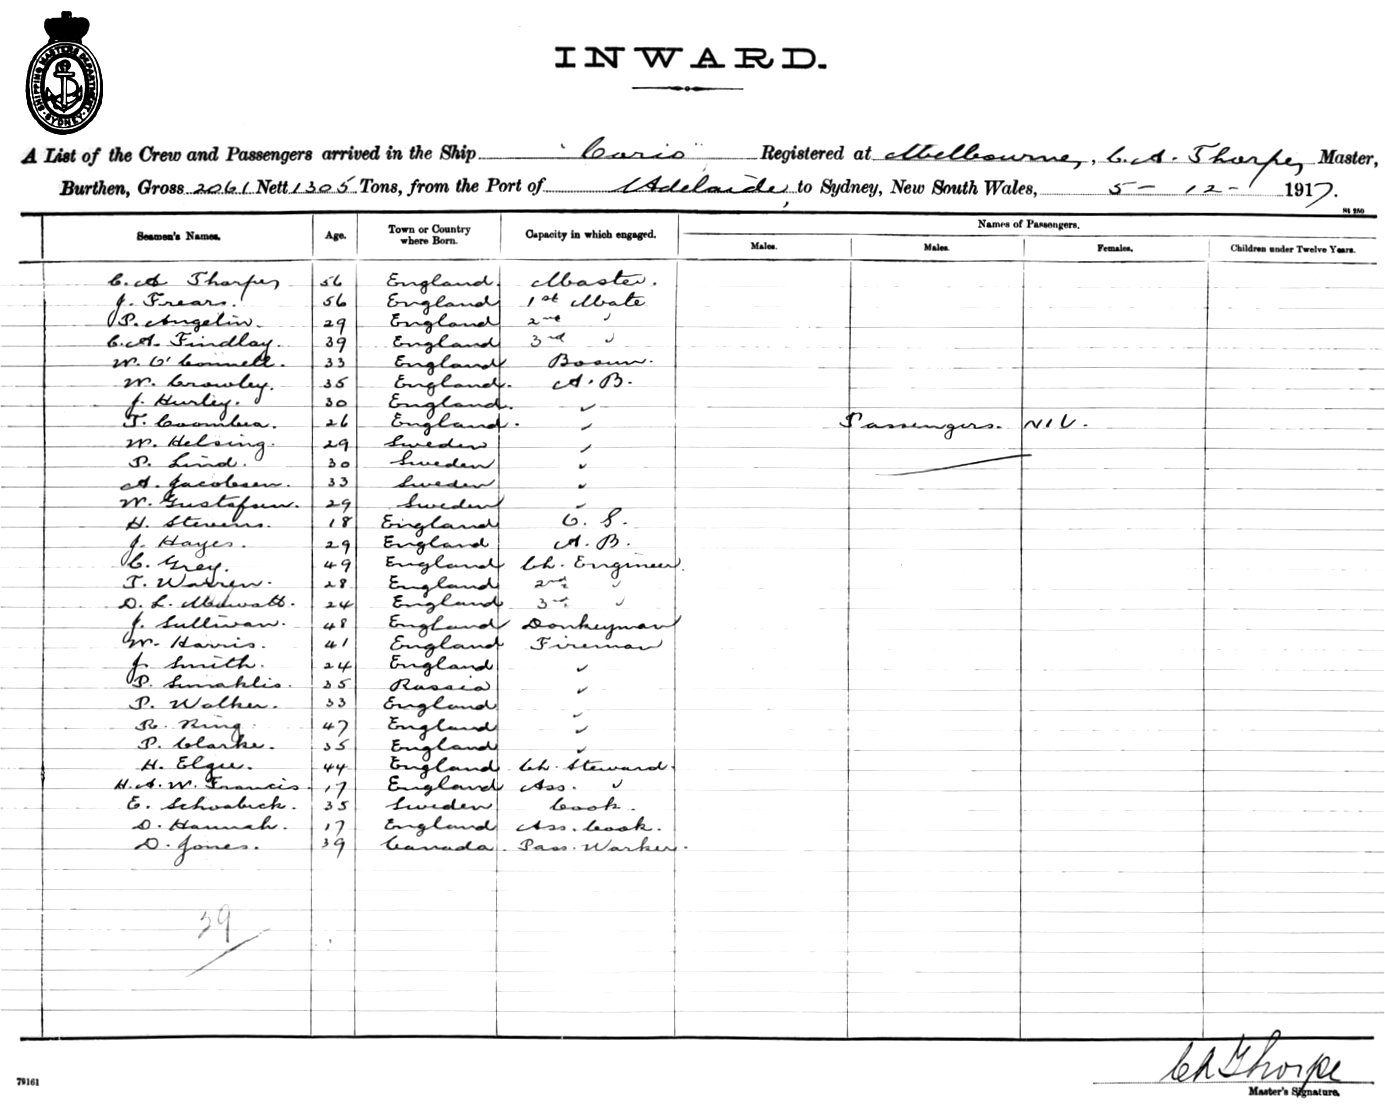 SHIPPING MASTERS DEPARTMENT SYDNEY
INWARD.
A List of the Crew and Passengers arrived in the Ship "Coris" Registered at Melbourne, C. A. Thorpe, Master,
Burthen, Gross 2061 Nett 1305 Tons, from the Port of Adelaide, to Sydney, New South Wales, 5 - 12 - 1917.
Seamen's Names. Age. Town or Country where Born. Capacity in which engaged. Names of Passengers.
Males. Males. Females. Children under Twelve Years.
C. A Thorpe, 56 England. Master.
J. Frears. 56 England 1st Mate
P. Angelin. 29 England 2nd "
C. A. Findlay. 39 England 3rd "
W. O'Connell. 33 England Bosun.
W. Crowley. 35 England. A. B.
J. Hurley. 30 England. "
T. Coombea. 26 England. " Passengers. NIL.
W. Helsing. 29 Sweden "
P. Lind. 30 Sweden "
A. Jacobsen. 33 Sweden "
W. Gustafsen. 29 Sweden "
H. Stevens. 18 England O. S.
J. Hayes. 29 England A. B.
C. Grey. 49 England Ch. Engineer.
T. Warren. 28 England 2nd "
D. L. 24 England 3rd "
J. Sullivan. 48 England Donkeyman
W. Harris. 41 England Fireman
J. Smith. 24 England "
P. Smaklis. 35 Russia "
P. Walker. 33 England "
R. Ring. 47 England "
P. Clarke. 35 England "
H. Elgie. 44 England Ch. Steward.
H. A. W. Francis. 17 England Ass. "
E. 35 Sweden Cook.
D. Hannah. 17 England Ass. Cook.
D. Jones. 39 Canada. Pass. Worker.
C A Thorpe
Master's Signature.
79161